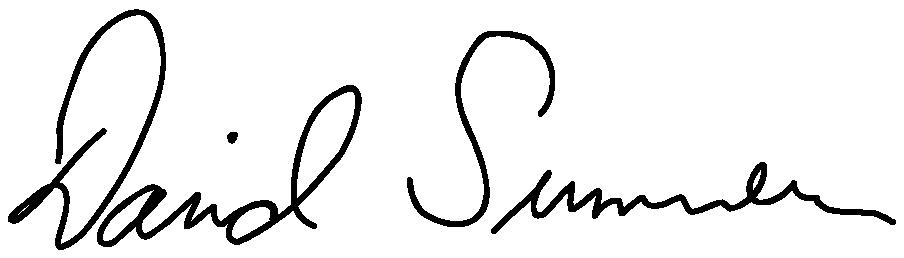 David Summers